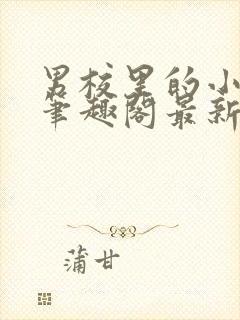 男校里的小
笔趣阁最新
蒲甘